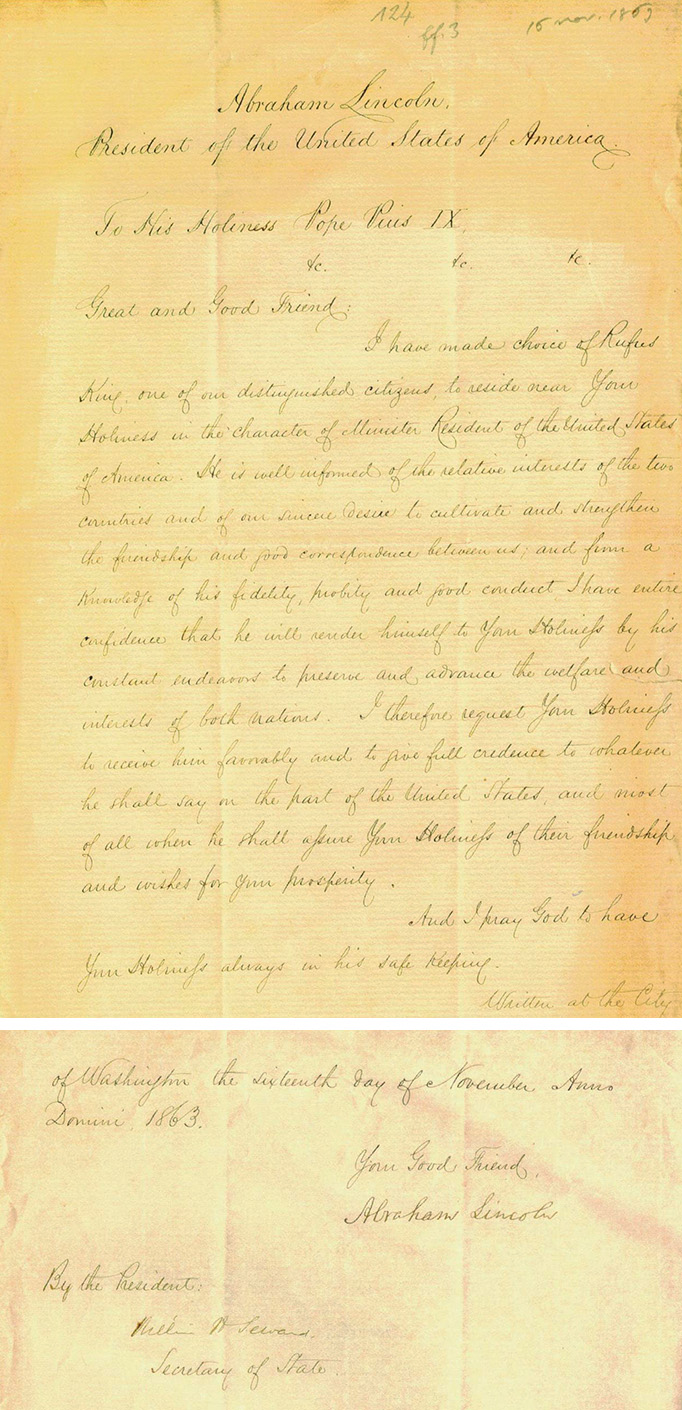 124
ff. 3
16 nov. 1863
Abraham Lincoln.
President of the United States of America.
To His Holiness Pope Pius IX,
&c. &c. &c.
Great and Good Friend:
I have made choice of Rufus
King, one of our distinguished citizens, to reside near Your
Holiness in the character of Minister Resident of the United States
of America. He is well informed of the relative interests of the two
countries and of our sincere desire to cultivate and strengthen
the friendship and good correspondence between us; and from a
knowledge of his fidelity, probity and good conduct, I have entire
confidence that he will render himself to Your Holiness by his
constant endeavors to preserve and advance the welfare and
interests of both nations. I therefore request Your Holiness
to receive him favorably and to give full credence to whatever
he shall say on the part of the United States, and most
of all when he shall assure Your Holiness of their friendship
and wishes for your prosperity.
And I pray God to have
Your Holiness always in his safe keeping.
Written at the City
of Washington the sixteenth day of November Anno
Domini, 1863.
Your Good Friend,
Abraham Lincoln
By the President:
William H Seward.
Secretary of State.